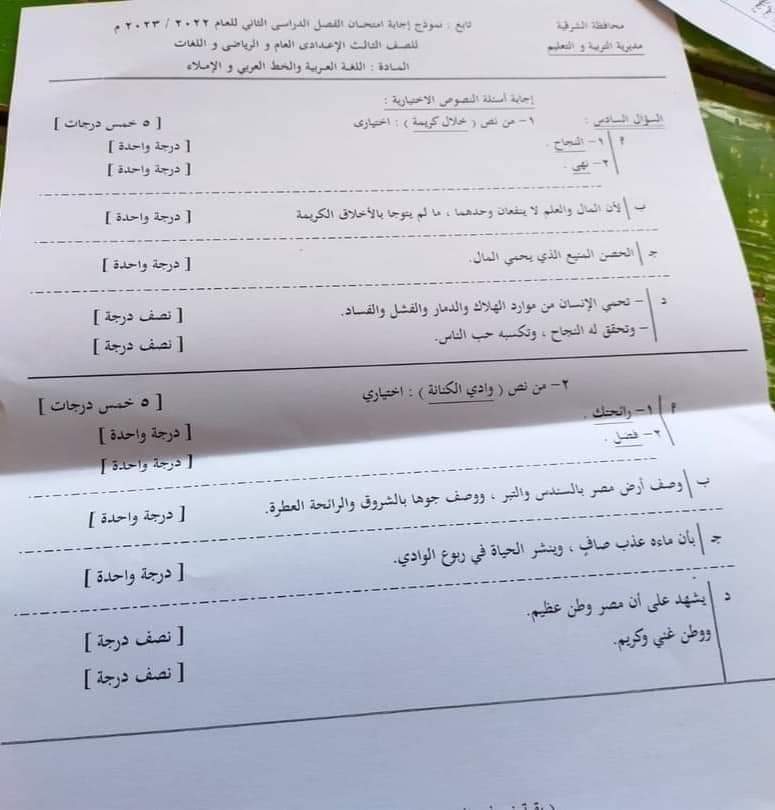 محافظة الشرقية
مديرية التربية و التعليم
تابع : نموذج إجابة امتحان الفصل الدراسى الثاني للعام ٢٠٢٢ / ٢٠٢٣ م
للصف الثالث الإعدادى العام و الرياضى و اللغات
المادة : اللغة العربية والخط العربي و الإملاء
إجابة أسئلة النصوص الاختيارية :
السؤال السادس : ١- من نص ( خلال كريمة ) : اختيارى [ ٥ خمس درجات ]
أ ١- النجاح . [ درجة واحدة ]
٢- نهى . [ درجة واحدة ]
ب لأن المال والعلم لا ينفعان وحدهما ، ما لم يتوجا بالأخلاق الكريمة [ درجة واحدة ]
جـ الحصن المنيع الذي يحمى المال. [ درجة واحدة ]
د – تحمى الإنسان من موارد الهلاك والدمار والفشل والفساد. [ نصف درجة ]
– وتحقق له النجاح ، وتكسبه حب الناس. [ نصف درجة ]
٢- من نص ( وادي الكنانة ) : اختياري [ ٥ خمس درجات ]
أ ١- رائحتك . [ درجة واحدة ]
٢- فتصل . [ درجة واحدة ]
ب وصف أرض مصر بالسندس والتبر ، ووصف جوها بالشروق والرائحة العطرة. [ درجة واحدة ]
جـ بأن ماءه عذب صافٍ ، وينشر الحياة في ربوع الوادي. [ درجة واحدة ]
د يشهد على أن مصر وطن عظيم. [ نصف درجة ]
ووطن غني وكريم. [ نصف درجة ]